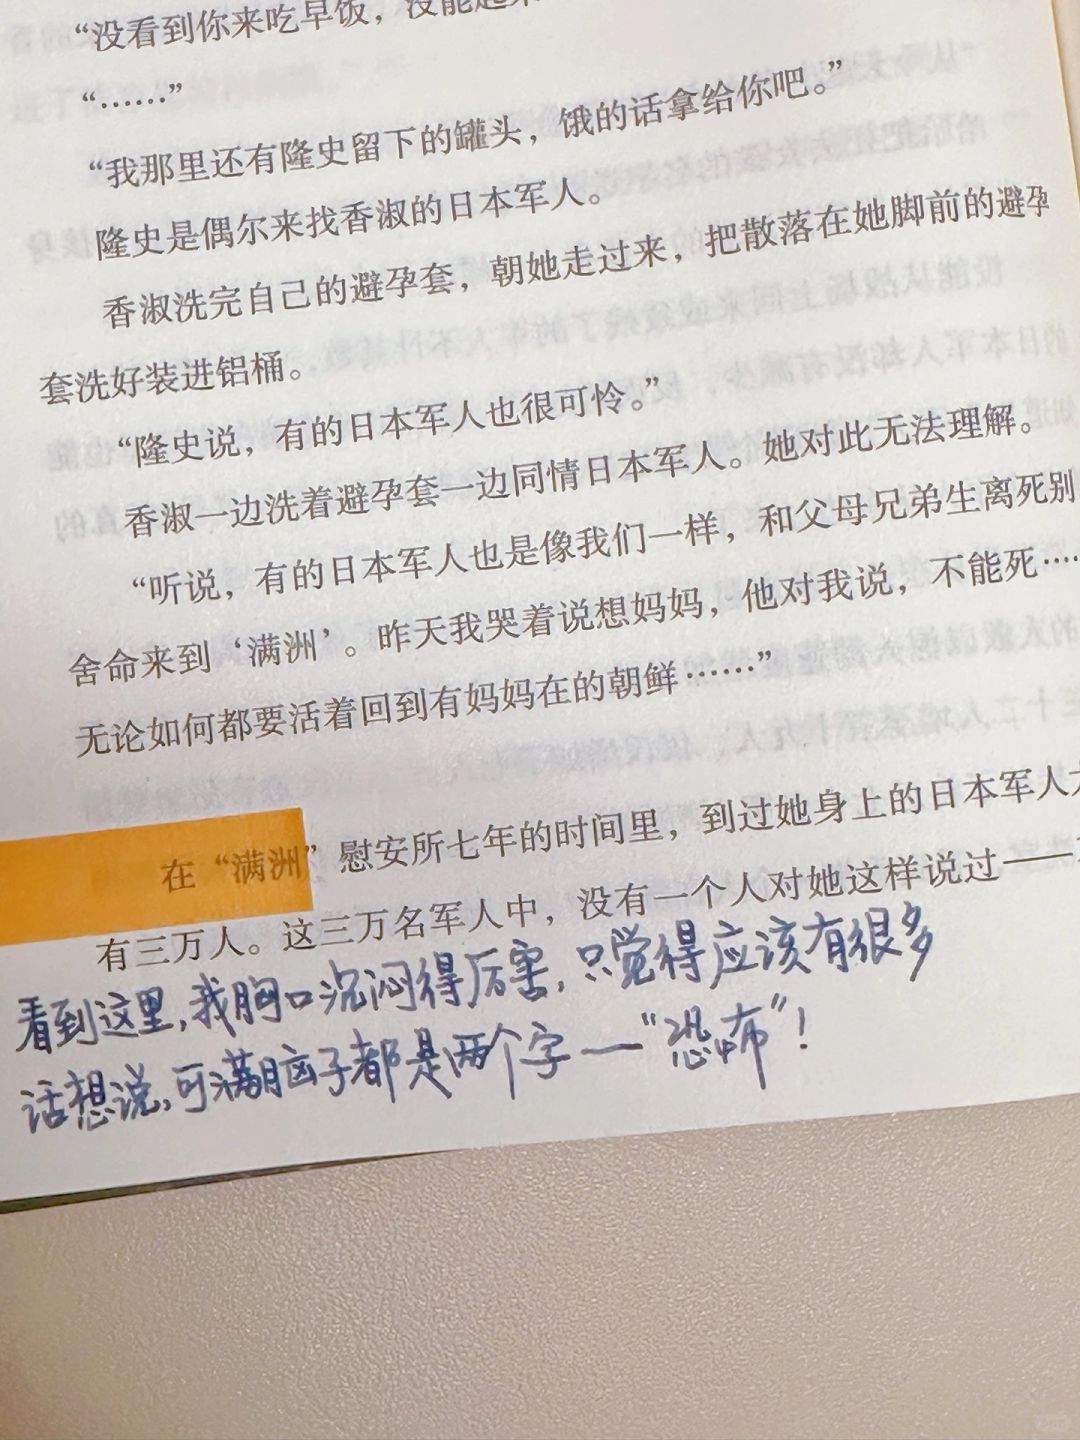 “没看到你来吃早饭，没能起来
“……”
“我那里还有隆史留下的罐头，饿的话拿给你吧。”
隆史是偶尔来找香淑的日本军人。
香淑洗完自己的避孕套，朝她走过来，把散落在她脚前的避孕
套洗好装进铝桶。
“隆史说，有的日本军人也很可怜。”
香淑一边洗着避孕套一边同情日本军人。她对此无法理解。
“听说，有的日本军人也是像我们一样，和父母兄弟生离死别
舍命来到‘满洲’。昨天我哭着说想妈妈，他对我说，不能死……
无论如何都要活着回到有妈妈在的朝鲜……”
在“满洲”慰安所七年的时间里，到过她身上的日本军人
有三万人。这三万名军人中，没有一个人对她这样说过——
看到这里，我胸口沉闷得厉害，只觉得应该有很多
话想说，可满脑子都是两个字—“恐怖”！